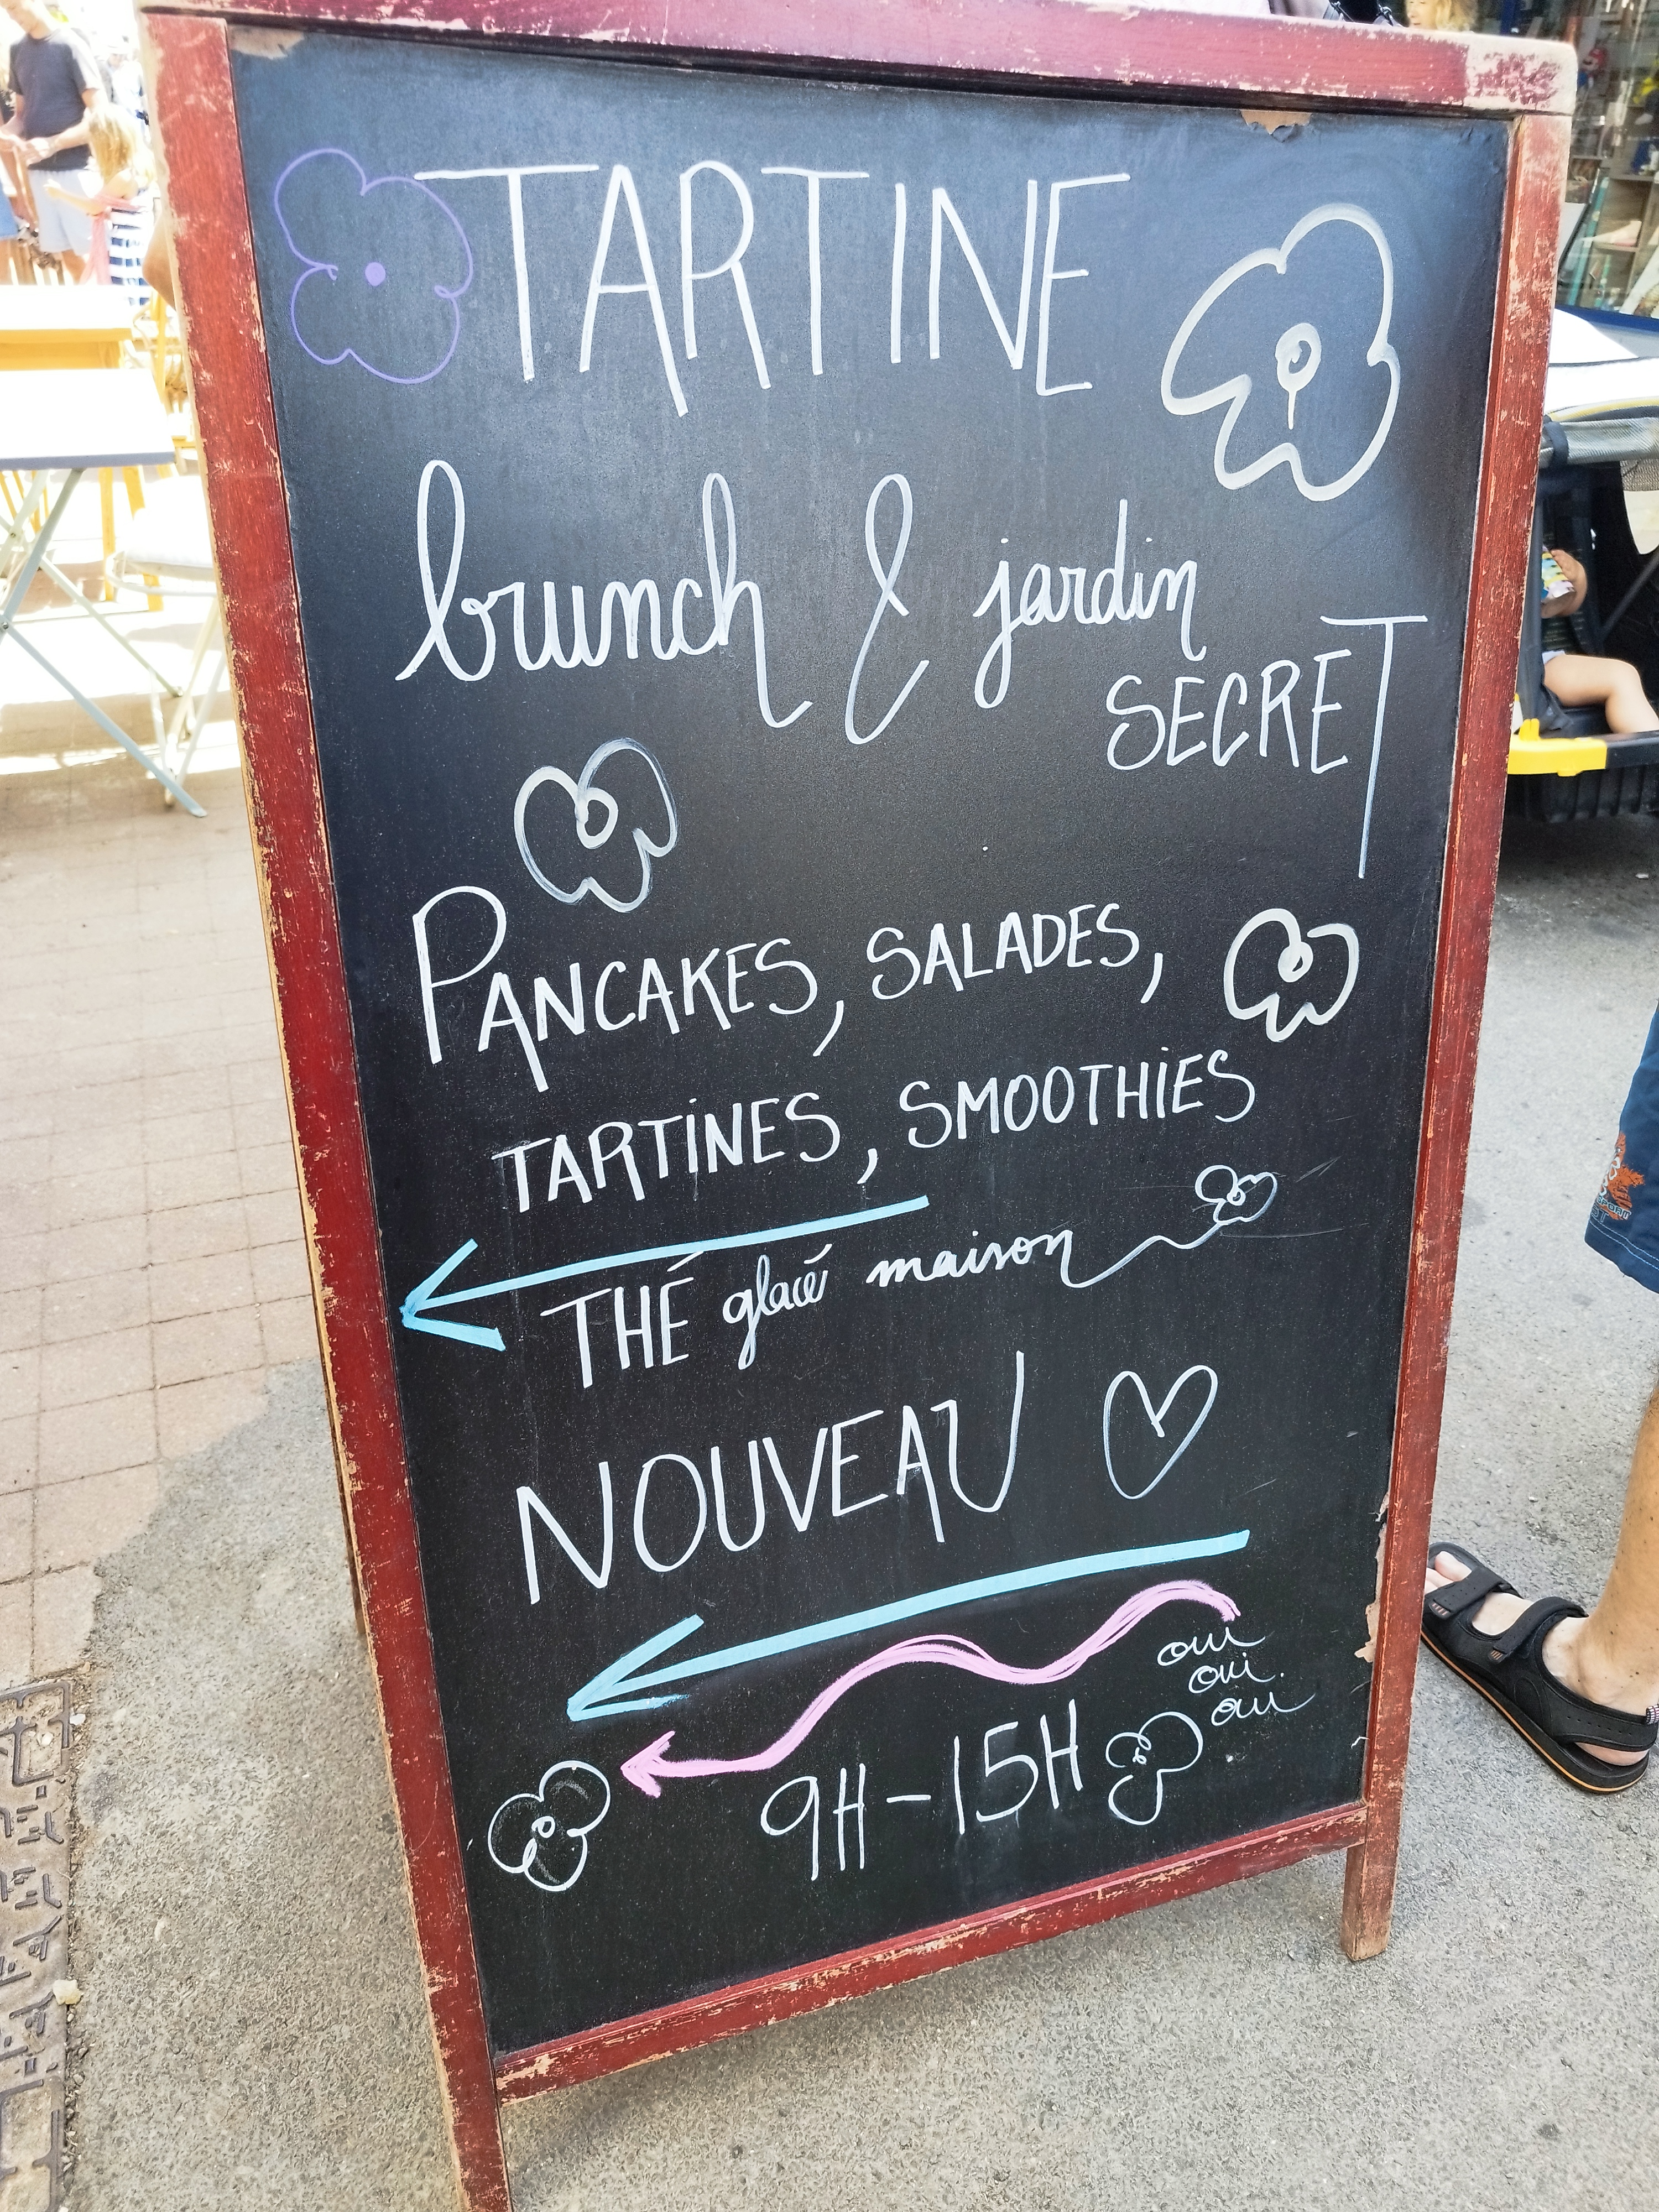 TARTINE
brunch & jardin
SECRET
PANCAKES, SALADES,
TARTINES, SMOOTHIES
THÉ glacé maison
NOUVEAU
oui
oui
oui
9H-15H